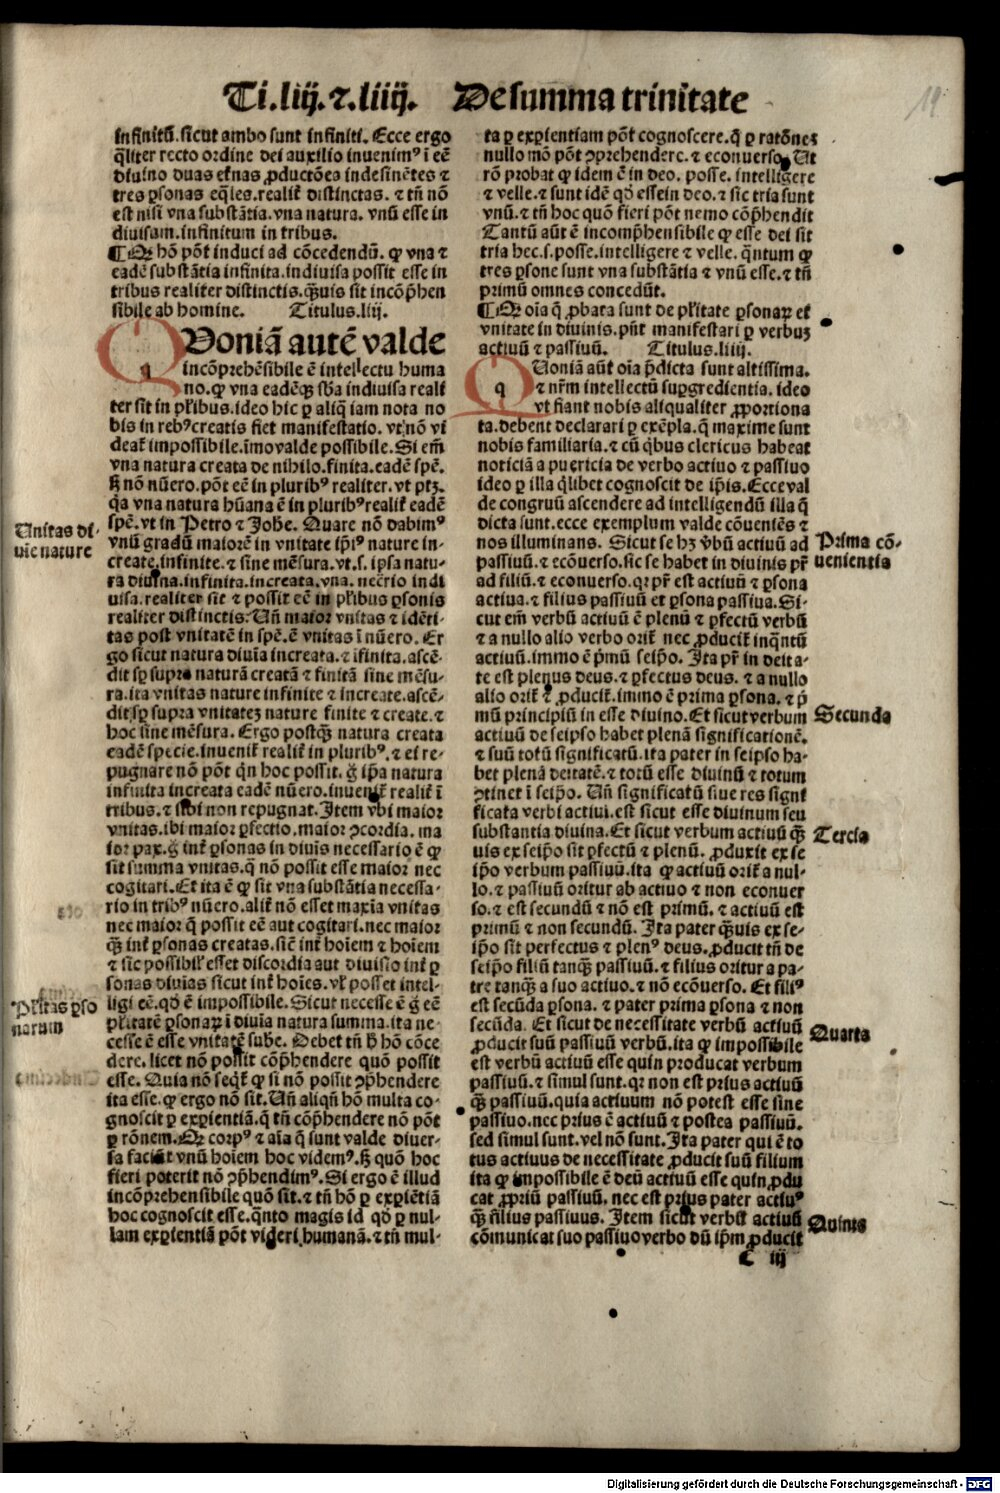 Ti.liij.⁊.liiij. De summa trinitate
infinitū.sicut ambo sunt infiniti. Ecce ergo
q̄liter recto ordine dei auxilio inuenimꝰ ī eē
diuino duas eť̄nas ꝓductōes indesinētes ⁊
tres ꝑsonas eq̄les.realiť distinctas. ⁊ tn̄ nō
est nisi vna substātia.vna natura. vnū esse in
diuisum.infinitum in tribus.
¶Ꝙ hō pōt induci ad cōcedendū. ꝙ vna ⁊
eadē substātia infinita.indiuisa possit esse in
tribus realiter distinctis.q̄uis sit incōp̄hen
sibile ab homine. Titulus.liij.
QVoniā autē valde
incōprehēsibile ē intellectu huma
no.ꝙ vna eadēqꝫ sb̄a indiuisa reali
ter sit in pl̄ibus.ideo hic ꝑ aliq̄ iam nota no
bis in rebꝰcreatis fiet manifestatio. vt nō vi
deať impossibile.īmo valde possibile. Si em̄
vna natura creata de nihilo.finita.eadē spē.
ꝫ nō nūero.pōt eē in pluribꝰ realiter.vt ptꝫ.
q̄a vna natura hūana ē in pluribꝰrealiť eadē
spē.vt in Petro ⁊ Johē. Quare nō dabimꝰ
vnū gradū maiorē in vnitate ip̄iꝰ nature in-
create.infinite.⁊ sine mēsura.vt.s.ipsa natu-
ra diuina.infinita.increata.vna.nūerio indi
uisa.realiter sit ⁊ possit eē in pl̄ibus ꝑsonis
realiter distinctis. Uñ maior vnitas ⁊ idēti-
tas post vnitatē in spē.ē vnitas ī nūero. Er
go sicut natura diuīa increata.⁊ īfinita.ascē-
dit sꝑ supra naturā creatā ⁊ finitā sine mēsu-
ra.ita vnitas nature infinite ⁊ increate.ascē-
dit.sꝑ supra vnitateꝫ nature finite ⁊ create.⁊
hoc sine mēsura. Ergo postq̄ꝫ natura creata
eadē specie.inueniť realiť in pluribꝰ.⁊ ei re-
pugnare nō pōt qn̄ hoc possit. ḡ ip̄a natura
infinita increata eadē nūero.inueniť realiť ī
tribus.⁊ sibi non repugnat. Item vbi maior
vnitas.ibi maior ꝑfectio.maior ꝯcordia. ma
ior pax. ḡ inť ꝑsonas in diuīs necessario ē ꝙ
sit summa vnitas.q̄ nō possit esse maior nec
cogitari. Et ita ē ꝙ sit vna substātia necessa-
rio in tribꝰ nūero.aliť nō esset maxīa vnitas
nec maior q̄ possit eē aut cogitari.nec maior
q̄ꝫ inť ꝑsonas creatas.sič inť hoīem ⁊ hoīem
⁊ sic possibiľ esset discordia aut diuisio inť ꝑ
sonas diuīas sicut inť hoīes. vľ posset intel-
ligi eē.qd̄ ē impossibile. Sicut necesse ē ḡ eē
pľitatē ꝑsonaꝝ ī diuīa natura summa.ita ne-
cesse ē esse vnitatē sub̄e. Debet tn̄ ꝫ hō cōce
dere. licet nō possit cōp̄hendere quō possit
esse. Quia nō seqť ꝙ si nō possit ꝯp̄hendere
ita esse.ꝙ ergo nō sit. Uñ aliqn̄ hō multa co-
gnoscit ꝑ exꝑientiā.q̄ tn̄ cōp̄hendere nō pōt
ꝑ rōnem. Ꝙ corpꝰ ⁊ aīa q̄ sunt valde diuer-
sa faciūt vnū hoīem hoc videmꝰ.ꝫ quō hoc
fieri poterit nō ꝯp̄hendimꝰ. Si ergo ē illud
incōprehensibile quō sit.⁊ tn̄ hō ꝑ exꝑiētiā
hoc cognoscit esse.q̄nto magis id qd̄ ꝑ nul-
lam exꝑientiā pōt videri humanā.⁊ tn̄ mul-
Unitas di-
uīe nature
Pľitas ꝑso
narum
ta ꝑ exꝑientiam pōt cognoscere.q̄ ꝑ ratōneꝫ
nullo mō pōt ꝯprehendere.⁊ econuerso. Ut
rō probat ꝙ idem ē in deo. posse. intelligere
⁊ velle.⁊ sunt idē qd̄ esse in deo.⁊ sic tria sunt
vnū.⁊ tn̄ hoc quō fieri pōt nemo cōp̄hendit
Tantū aūt ē incomp̄hensibile ꝙ esse dei sit
tria hec.s.posse.intelligere ⁊ velle. q̄ntum ꝙ
tres ꝑsone sunt vna substātia ⁊ vnū esse.⁊ tn̄
primū omnes concedūt.
¶Ꝙ oīa q̄ ꝓbata sunt de pľitate ꝑsonaꝝ et
vnitate in diuinis.pn̄t manifestari ꝑ verbuꝫ
actiuū ⁊ passiuū. Titulus.liiij.
QUoniā aūt oīa p̄dicta sunt altissima.
⁊ nr̄m intellectū suꝑgredientia. ideo
vt fiant nobis aliqualiter ꝓportiona
ta.debent declarari ꝑ exēpla.q̄ maxime sunt
nobis familiaria.⁊ cū qb̄us clericus habeat
noticiā a puericia de verbo actiuo ⁊ passiuo
ideo ꝑ illa q̄libet cognoscit de ip̄is. Ecce val
de congruū ascendere ad intelligendū illa q̄
dicta sunt.ecce exemplum valde cōueniēs ⁊
nos illuminans. Sicut se hꝫ v̄bū actiuū ad
passiuū.⁊ ecōuerso.sic se habet in diuinis pr̄
ad filiū.⁊ econuerso.qꝛ pr̄ est actiuū ⁊ ꝑsona
actiua.⁊ filius passiuū et ꝑsona passiua. Si-
cut em̄ verbū actiuū ē plenū ⁊ ꝑfectū verbū
⁊ a nullo alio verbo oriť nec ꝓduciť inq̄ntū
actiuū.immo ē p̄mū seip̄o. Ita pr̄ in deita-
te est plenus deus.⁊ ꝑfectus deus. ⁊ a nullo
alio oriť ⁊ ꝓduciť.immo ē prima ꝑsona. ⁊ p̄
mū principiū in esse diuino. Et sicut verbum
actiuū de seipso habet plenā significationē.
⁊ suū totū significatū.ita pater in seipso ha-
bet plenā deitatē.⁊ totū esse diuinū ⁊ totum
ꝯtinet ī seip̄o. Uñ significatū siue res signi
ficata verbi actiui.est sicut esse diuinum seu
substantia diuina. Et sicut verbum actiuū q̄ꝫ
uis ex seip̄o sit ꝑfectū ⁊ plenū. ꝓduxit ex se
ip̄o verbum passiuū.ita ꝙ actiuū oriť a nul-
lo.⁊ passiuū oritur ab actiuo ⁊ non econuer
so.⁊ est secundū ⁊ nō est primū. ⁊ actiuū est
primū ⁊ non secundū. Ita pater q̄ꝫuis ex se-
ip̄o sit perfectus ⁊ plenꝰ deus.ꝓducit tn̄ de
seip̄o filiū tanq̄ꝫ passiuū.⁊ filius oritur a pa-
tre tanq̄ꝫ a suo actiuo.⁊ nō ecōuerso. Et filiꝰ
est secūda ꝑsona. ⁊ pater prima ꝑsona ⁊ non
secūda. Et sicut de necessitate verbū actiuū
ꝓducit suū passiuū verbū.ita ꝙ impossibile
est verbū actiuū esse quin producat verbum
passiuū.⁊ simul sunt.qꝛ non est prius actiuū
q̄ꝫ passiuū.quia actiuum nō potest esse sine
passiuo.nec prius ē actiuū ⁊ postea passiuū.
sed simul sunt.vel nō sunt. Ita pater qui ē to
tus actiuus de necessitate ꝓducit suū filium
ita ꝙ impossibile ē deū actiuū esse quin ꝓdu
cat ꝓpriū passiuū. nec est prius pater actiuꝰ
q̄ꝫ filius passiuus. Item sicut verbū actiuū
cōmunicat suo passiuo verbo dū ip̄m ꝓducit
Prima cō-
uenientia
Secunda
Tercia
Quarta
Quinta
C iij
Digitalisierung gefördert durch die Deutsche Forschungsgemeinschaft - DFG